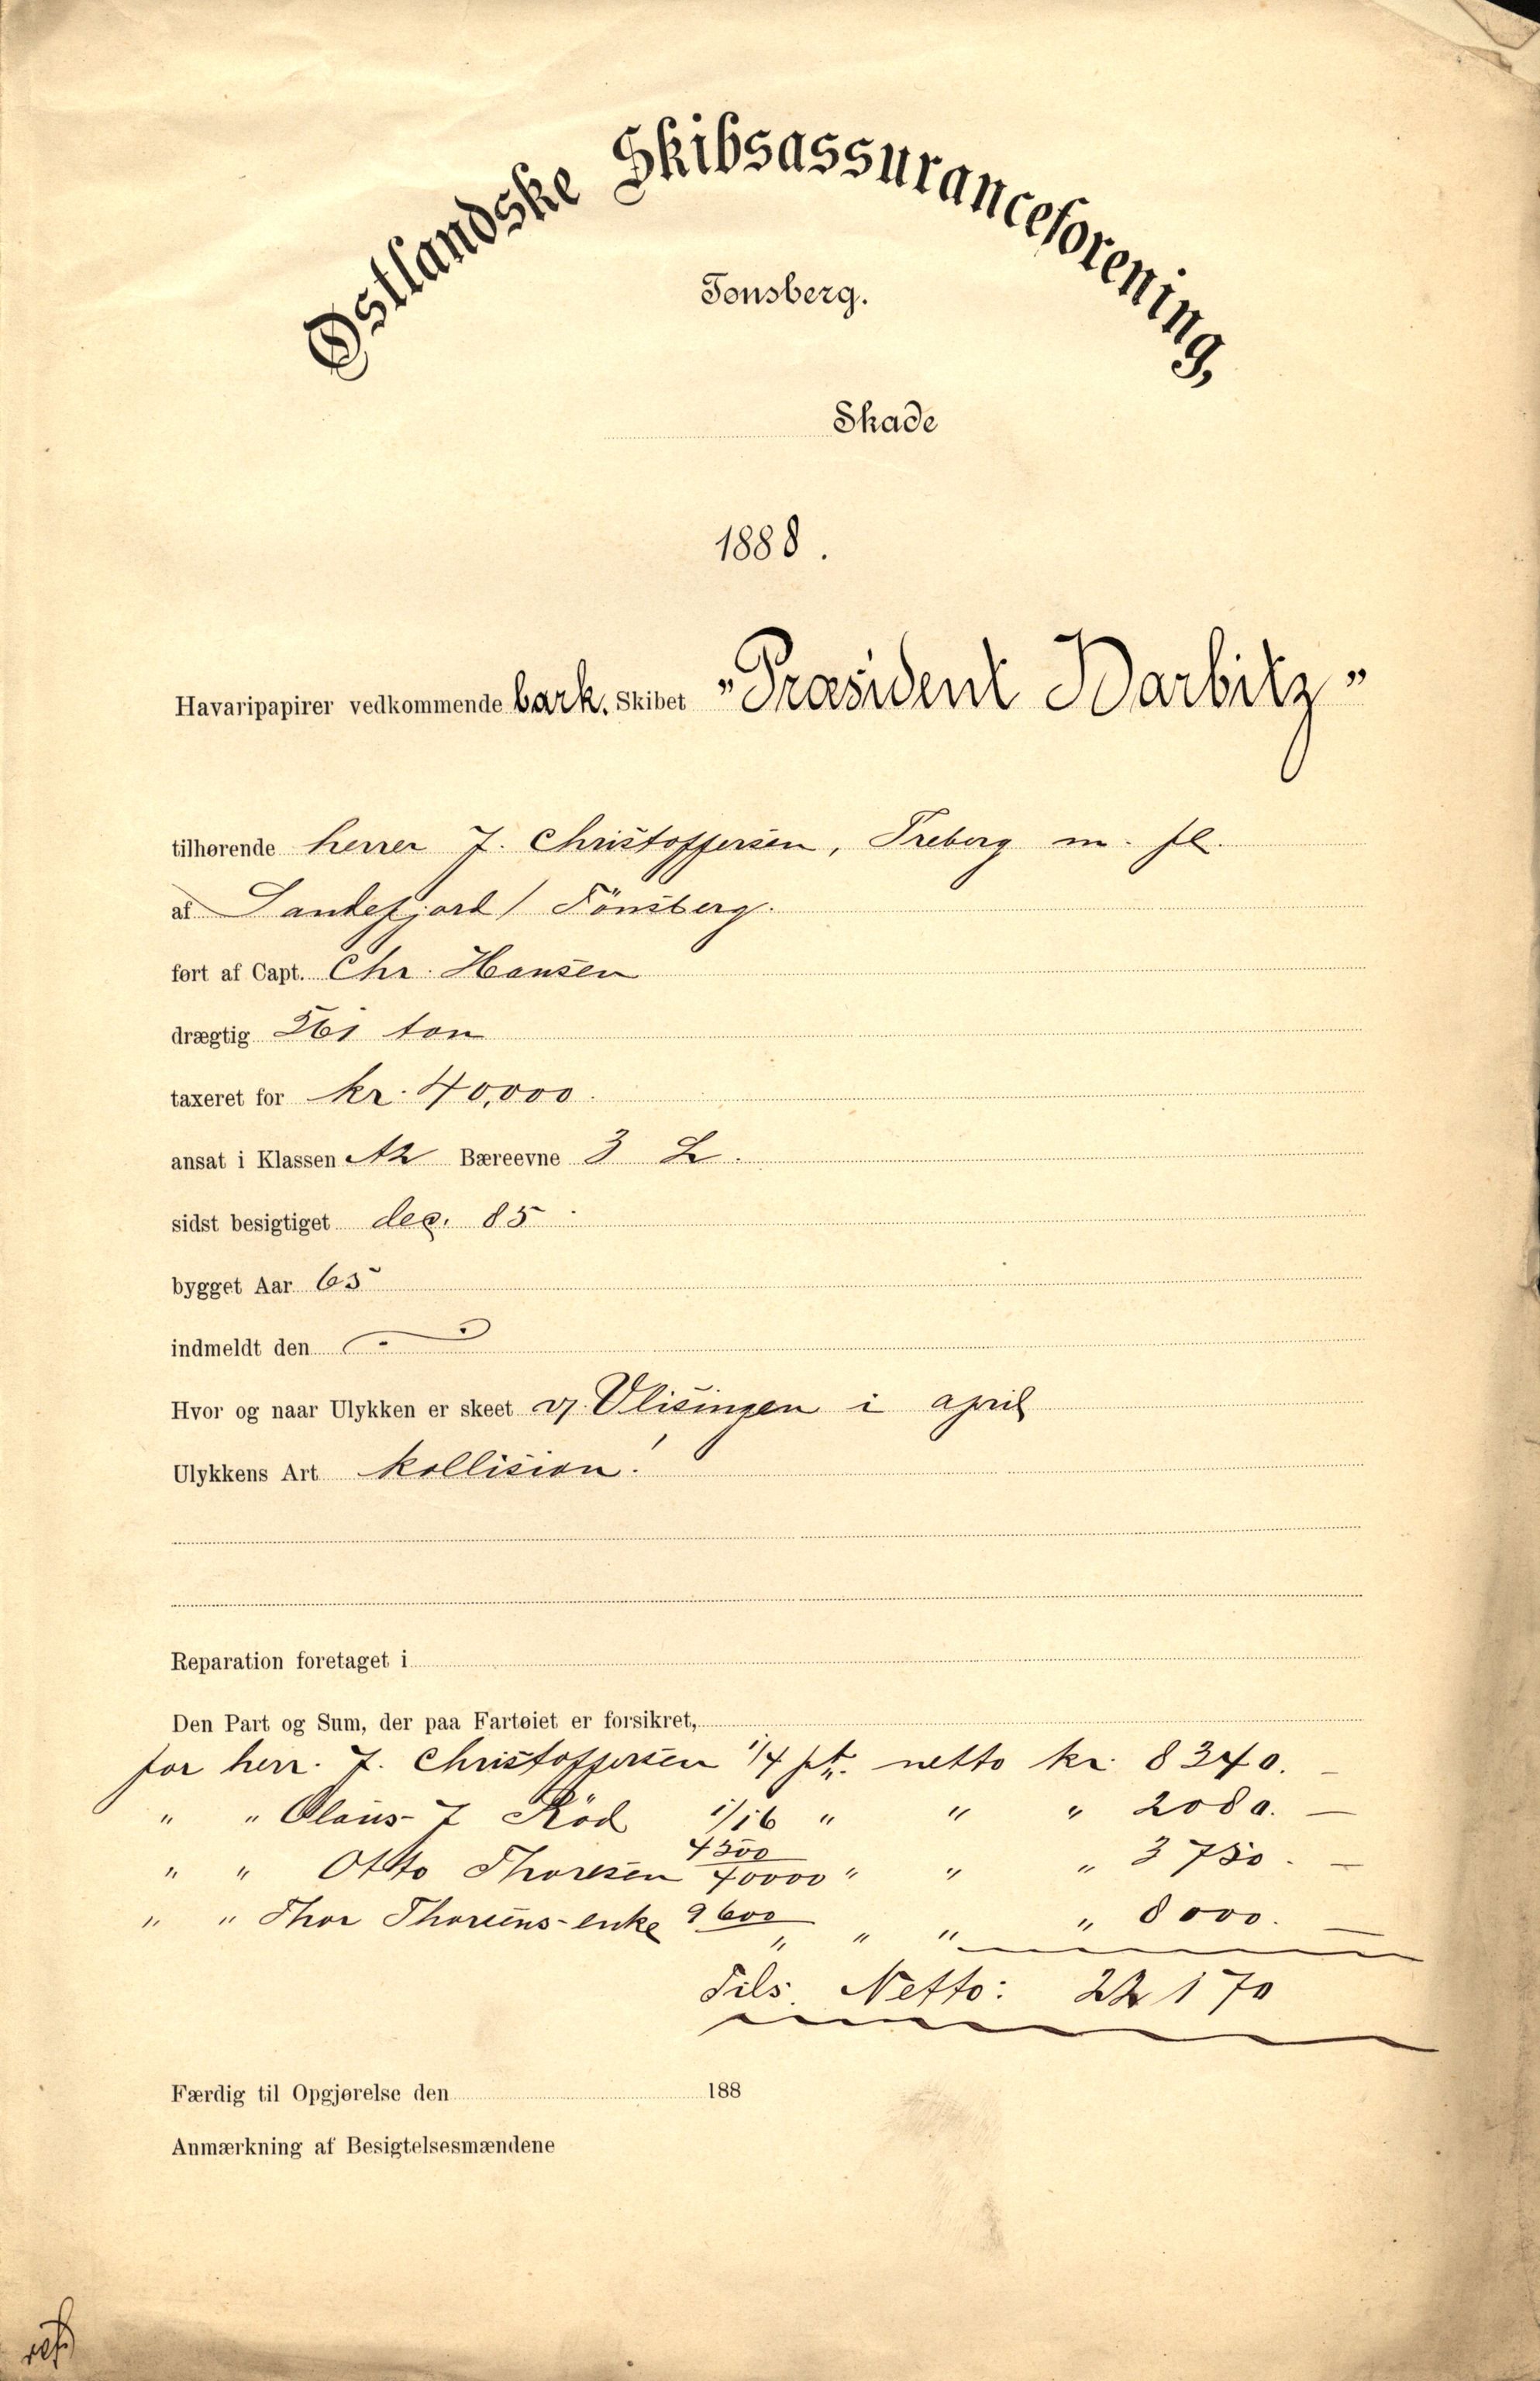 Østlandske Skibsassuranceforening,
Tønsberg.
Skade
1888.
Havaripapirer vedkommende bark. Skibet „Præsident Harbitz"
tilhørende herrer J. Christoffersen, Treborg m. fl.
af Sandefjord / Tönsberg.
ført af Capt. Chr. Hansen
drægtig 561 ton
taxeret for kr. 40,000.
ansat i Klassen A2 Bæreevne 3 L.
sidst besigtiget dec. 85
bygget Aar 65
indmeldt den
Hvor og naar Ulykken er skeet v/ Vlisingen i april
Ulykkens Art kollision!
Reparation foretaget i
Den Part og Sum, der paa Fartøiet er forsikret,
for herr. J. Christoffersen 1/4 pt. netto kr. 8340. –
" " Olaus J Röd 1/16 " " " 2080. –
" " Otto Thoresen 4500/40000 " " " 3750. –
" " Thor Thoresens enke 9600/" " " " 8000. –
Tils. Netto: 22170
Færdig til Opgjørelse den 188
Anmærkning af Besigtelsesmændene